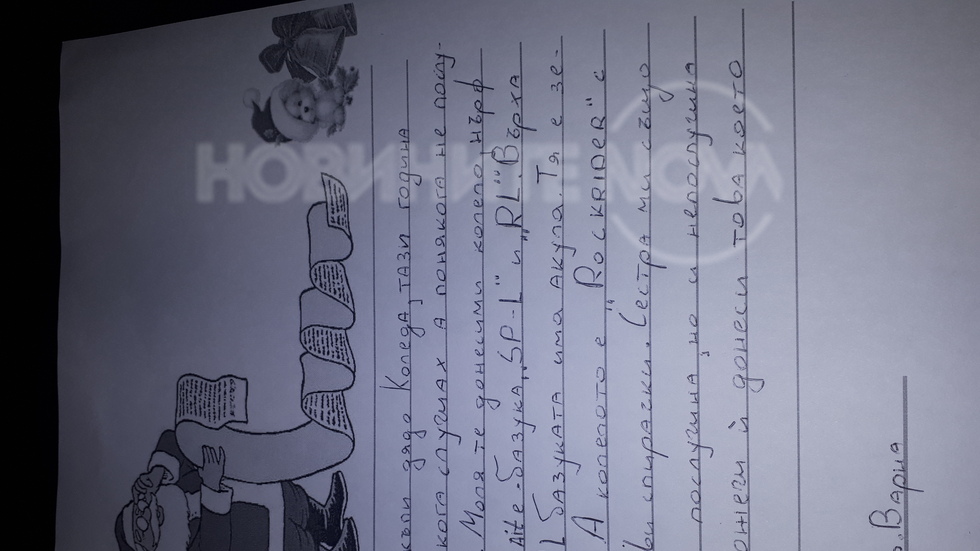 НОВИНИТЕ NOVA
къпи дядо Коледа, тази година
кога слушах а понякога не послу-
. Моля те донесими колело, нърф
Aite - базука „SP-L" и „RL". Върха
L базуката има акула. Тя е зе-
А колелото е „Rockrider" с
ви спирачки. Сестра ми също
послушна, но и непослушна
ожеги ѝ донеси това което
р. Варна